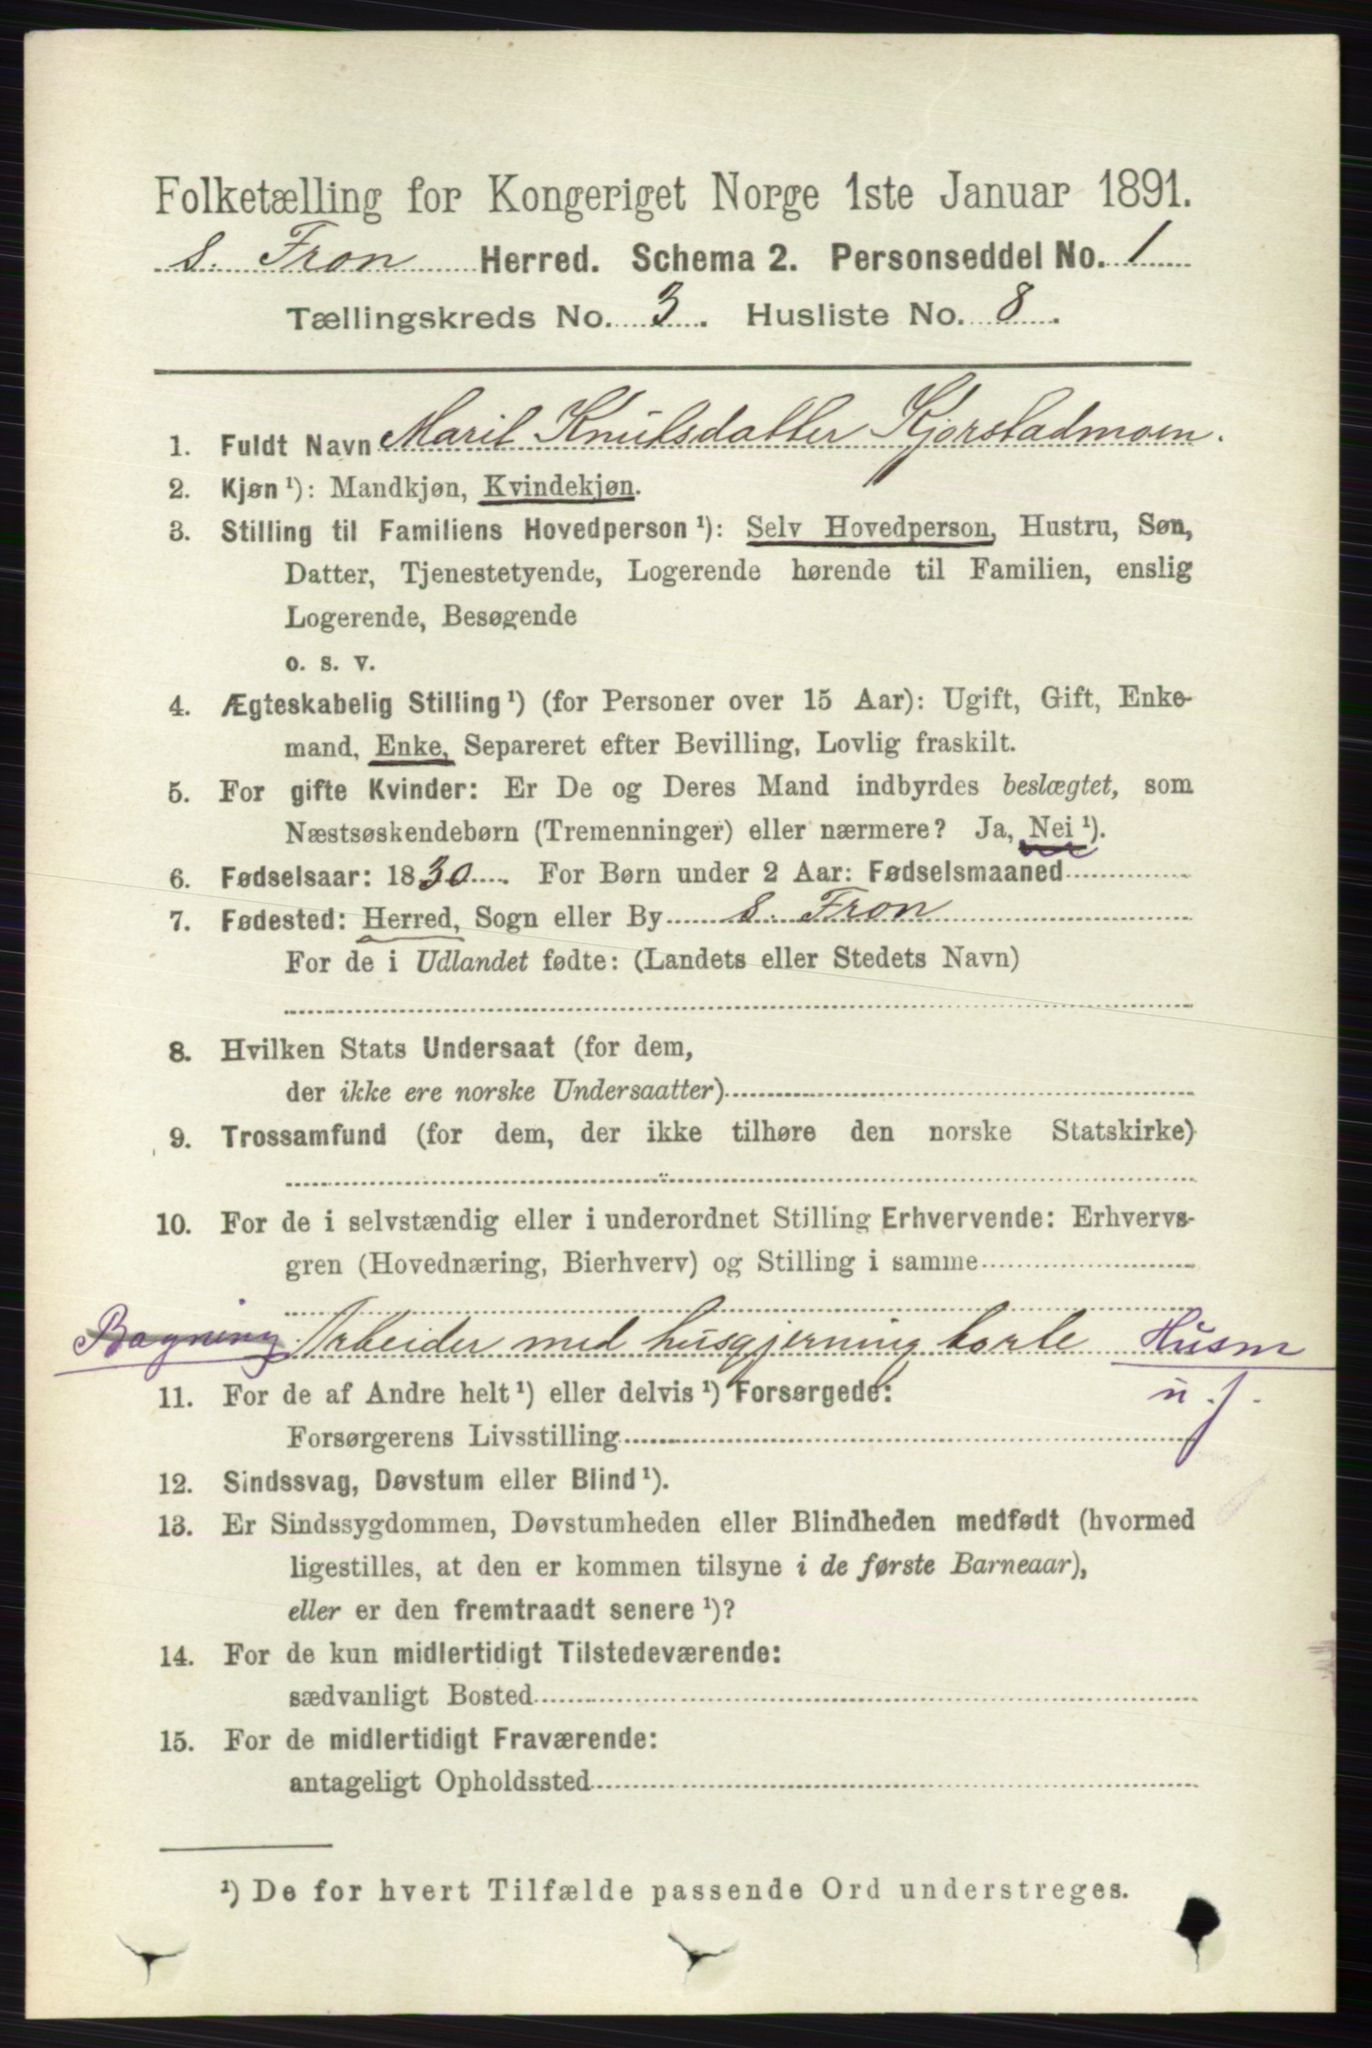 Folketælling for Kongeriget Norge 1ste Januar 1891.
S. Fron Herred. Schema 2. Personseddel No. 1
Tællingskreds No. 3. Husliste No. 8.
1. Fuldt Navn Marit Knutsdatter Kjorstadmoen.
2. Kjøn ¹): Mandkjøn, Kvindekjøn.
3. Stilling til Familiens Hovedperson ¹): Selv Hovedperson, Hustru, Søn,
Datter, Tjenestetyende, Logerende hørende til Familien, enslig
Logerende, Besøgende
o. s. v.
4. Ægteskabelig Stilling ¹) (for Personer over 15 Aar): Ugift, Gift, Enke-
mand, Enke, Separeret efter Bevilling, Lovlig fraskilt.
5. For gifte Kvinder: Er De og Deres Mand indbyrdes beslægtet, som
Næstsøskendebørn (Tremenninger) eller nærmere? Ja, Nei ¹).
6. Fødselsaar: 1830. For Børn under 2 Aar: Fødselsmaaned
7. Fødested: Herred, Sogn eller By S. Fron
For de i Udlandet fødte: (Landets eller Stedets Navn)
8. Hvilken Stats Undersaat (for dem,
der ikke ere norske Undersaatter)
9. Trossamfund (for dem, der ikke tilhøre den norske Statskirke)
10. For de i selvstændig eller i underordnet Stilling Erhvervende: Erhvervs-
gren (Hovednæring, Bierhverv) og Stilling i samme
Bagning Arbeider med husgjerning borte Husm
u. j.
11. For de af Andre helt ¹) eller delvis ¹) Forsørgede:
Forsørgerens Livsstilling
12. Sindssvag, Døvstum eller Blind ¹).
13. Er Sindssygdommen, Døvstumheden eller Blindheden medfødt (hvormed
ligestilles, at den er kommen tilsyne i de første Barneaar),
eller er den fremtraadt senere ¹)?
14. For de kun midlertidigt Tilstedeværende:
sædvanligt Bosted
15. For de midlertidigt Fraværende:
antageligt Opholdssted
¹) De for hvert Tilfælde passende Ord understreges.